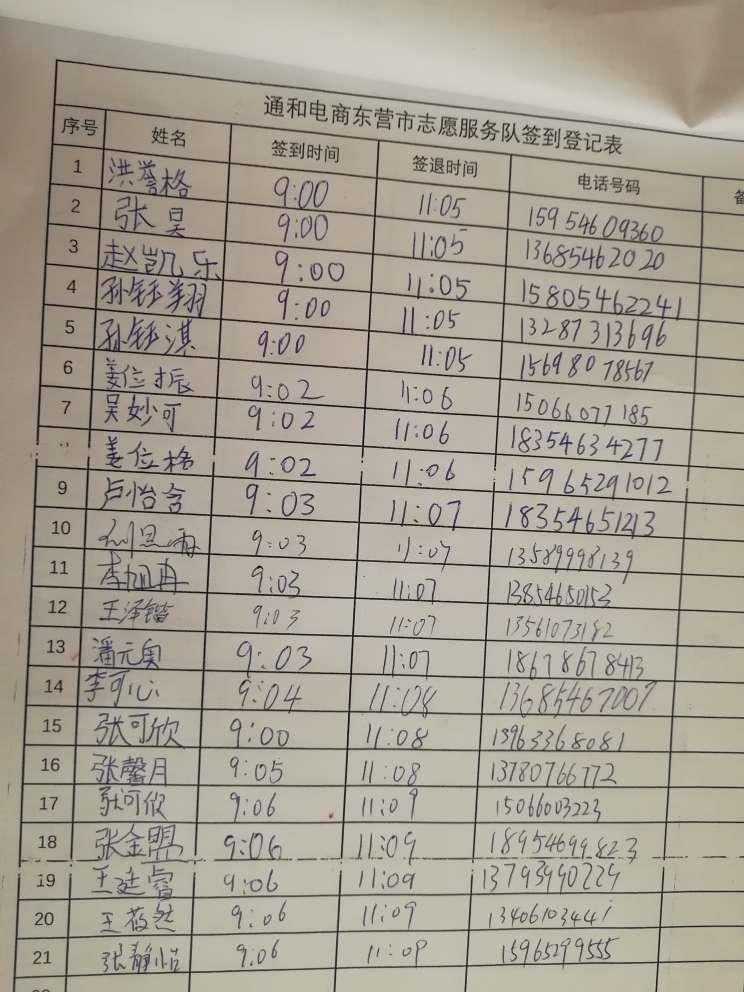 通和电商东营市志愿服务队签到登记表
序号 姓名 签到时间 签退时间 电话号码 备
1 洪誉格 9:00 11:05 15954609360
2 张昊 9:00 11:05 13685462020
3 赵凯乐 9:00 11:05 15805462241
4 孙钰翔 9:00 11:05 13287313696
5 孙钰淇 9:00 11:05 15698078567
6 姜位振 9:02 11:06 15066077185
7 吴妙可 9:02 11:06 18354634277
姜位格 9:02 11:06 15965291012
9 卢怡含 9:03 11:07 18354651213
10 9:03 11:07 13589998139
11 9:03 11:07 13854650153
12 王泽锴 9:03 11:07 13561073182
13 潘元奥 9:03 11:07 18678678413
14 李可心 9:04 11:08 13685467007
15 张可欣 9:00 11:08 13963368081
16 张馨月 9:05 11:08 13780766772
17 耿可欣 9:06 11:09 15066003223
18 张金盟 9:06 11:09 18954699823
19 王廷睿 9:06 11:09 13793990229
20 王筱然 9:06 11:09 13406103441
21 张静怡 9:06 11:09 15965299555